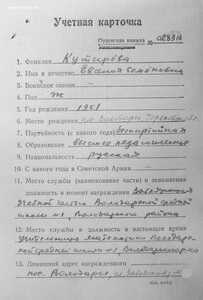 Учетная карточка
Орденская книжка
Удостоверение
№ 028313
1. Фамилия Кутырева
2. Имя и отчество Евгения Семёновна
3. Воинское звание —
4. Пол Ж
5. Год рождения 1901
6. Место рождения
7. Партийность (с какого года) беспартийная
8. Образование высшее педагогическое
9. Национальность русская
10. С какого года в Советской Армии —
11. Место службы (наименование части) и занимаемая
должность в момент награждения Заведующая
учебной частью Володарской средней
школы №1, Володарского района
12. Место службы и должность в настоящее
время учительница математики Володар-
ской средней школы №1, Володарского р-на
13. Домашний адрес награжденного
пос. Володарск
(См. об.)